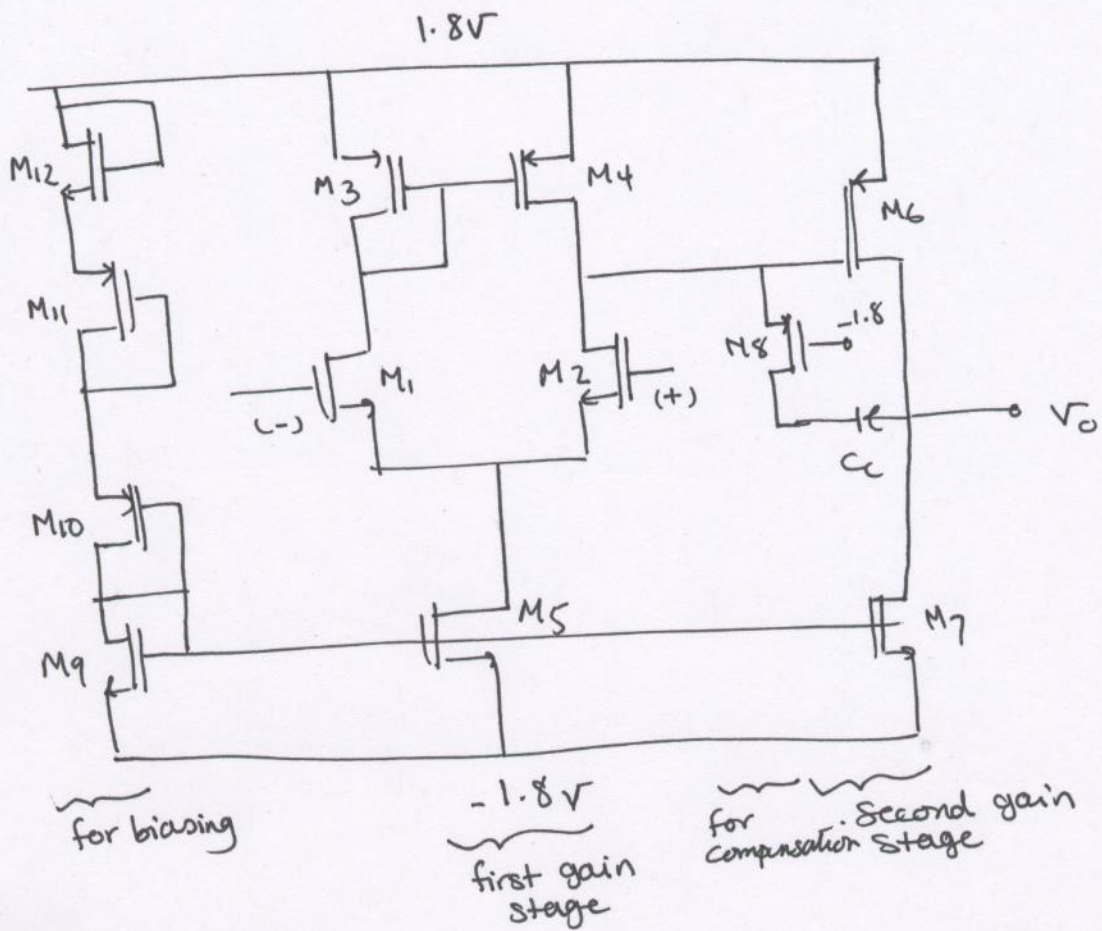 1.8V
M12
M3
M4
M6
M11
M8
-1.8
M1
M2
(-)
(+)
Vo
Cc
M10
M5
M7
M9
-1.8V
for biasing
first gain
stage
for
compensation
Second gain
stage